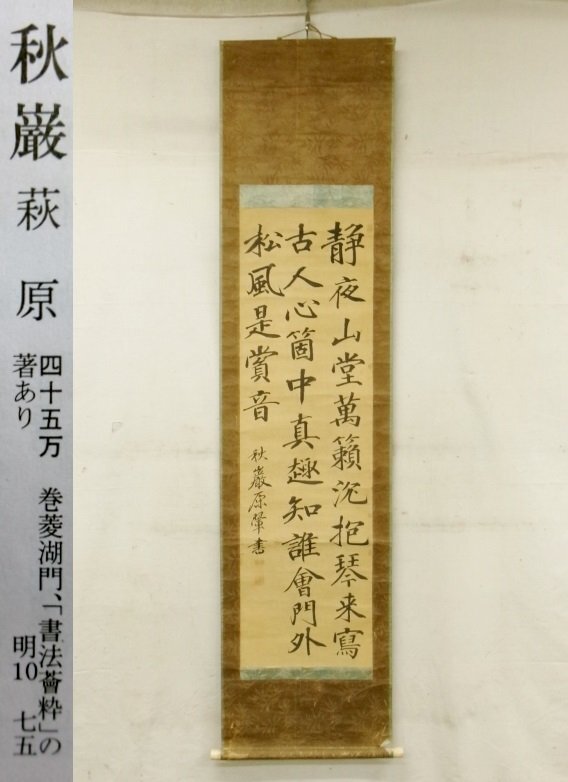 秋巌 萩原
四十五万 巻菱湖門、「書法薈粋」の
著あり 明10 七五
静夜山堂萬籟沈抱琴来寫
古人心箇中真趣知誰會門外
松風是賞音
秋巖原翬書